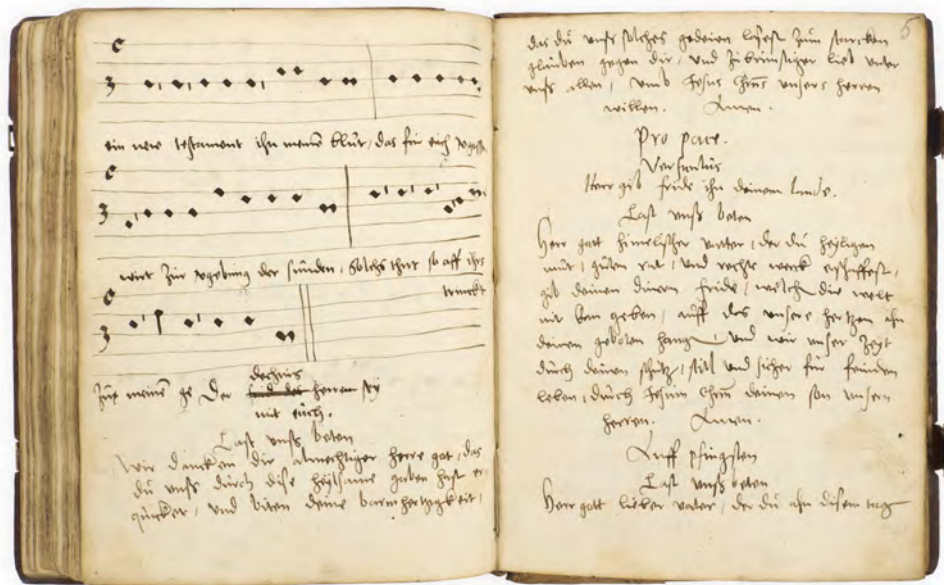 ein new testament ihn meinē blůt, das fir eich vgossē
wirt zur vgebung der sunden, solchs thut so offt ihrs
trinckt
zů meinē ge Der herren sey
mit eüch.
Last vnß beten
Wir dancken dir almechtiger herre got, das
dů vnß dürch dise heylsame gaben hast er,
qůicket, vnd biten deine barmhertzigkeit,
5
das dů vnß solches gedeien lasest zům starcken
glauben gegen dir, vnd zů brinstiger lieb vnter
vnß allen, vmb Jesus Chrūs vnsers herren
willen. Amen.
Pro pace.
Versiculus
Herr gib fride ihn deinem lande.
Last vnß beten
Herr gott himelischer vatter, der dů heyligen
můt, gůten rat, vnd rechte werck schaffest,
gib deinen dienern fride, welch die welt
nit kan geben, auff das vnsere hertzen ahn
deinen geboten hangē, vnd wir vnser zeyt
dürch deinen schutz, still vnd sicher für feinden
leben, dürch Jhesum Chrm deinen son vnsern
herren. Amen.
Auff pfingsten
Last vnß beten
Herr gott lieber vater, der dů ahn disem tag